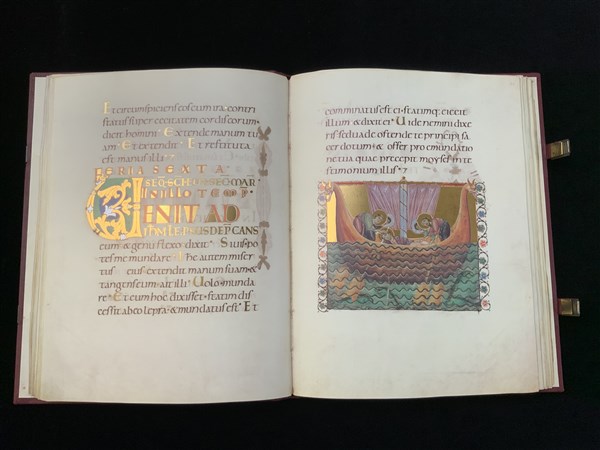 Et circumspiciens eos cum ira, contri
status super cecitatem cordis eorum·
dicit homini· Extende manum tu
am· Et extendit· Et restituta
est manus illi·
FERIA SEXTA·
MAR
IN illo TEMP·
VENIT AD
DEPCANS
eum & genu flexo dixit· Si uis· po
tes me mundare· Ihc autem miser
tus eius extendit manum suam &
tangens eum ait illi· Uolo· munda
re· Et cum hoc dixisset· statim dis
cessit ab eo lepra· & mundatus est· Et
comminatus est ei· statimq; eiecit
illum & dixit ei· Uide nemini dixe
ris sed uade ostende te principi sa
cerdotum· & offer pro emundatio
ne tua que precepit moyses in te
stimonium illis·